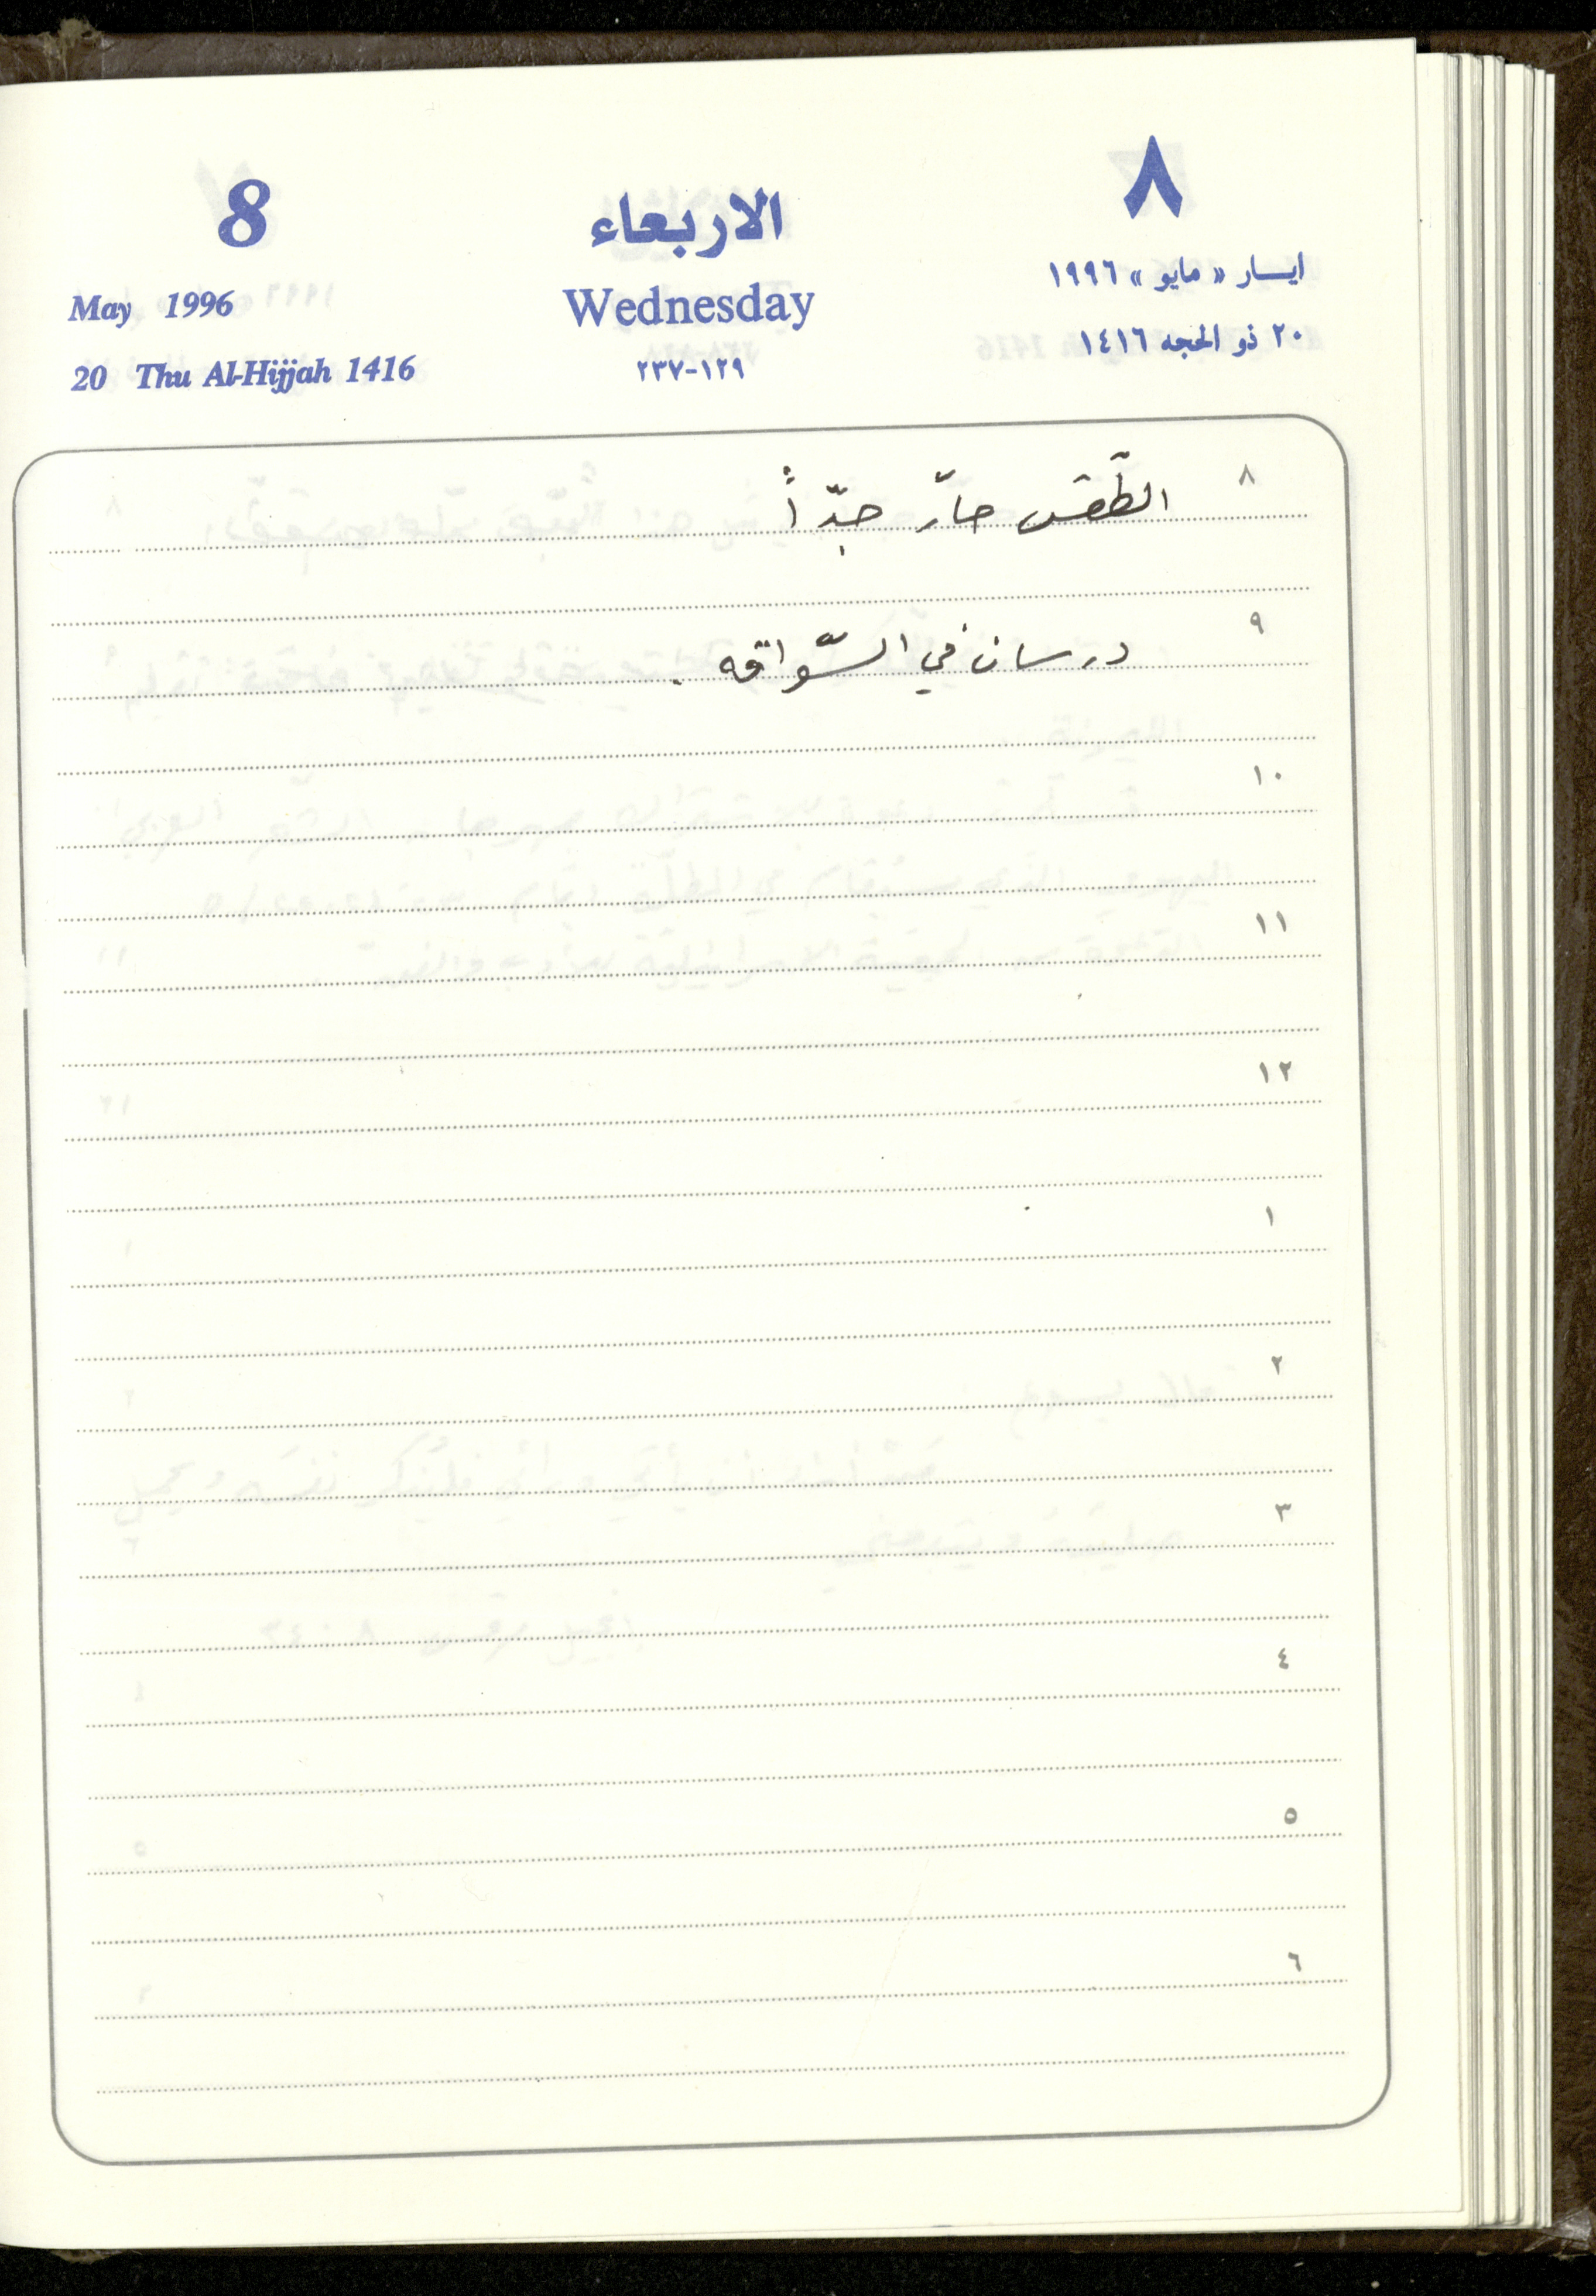 8 الاربعاء ٨
May 1996 Wednesday ايسار « مايو » ١٩٩٦
20 Thu Al-Hijjah 1416 ٢٣٧-١٢٩ ٢٠ ذو الحجه ١٤١٦
٨ الطّقس حارّ جدّاً
٩ درسان في السّواقه .
١٠
١١
١٢
١
٢
٣
٤
٥
٦